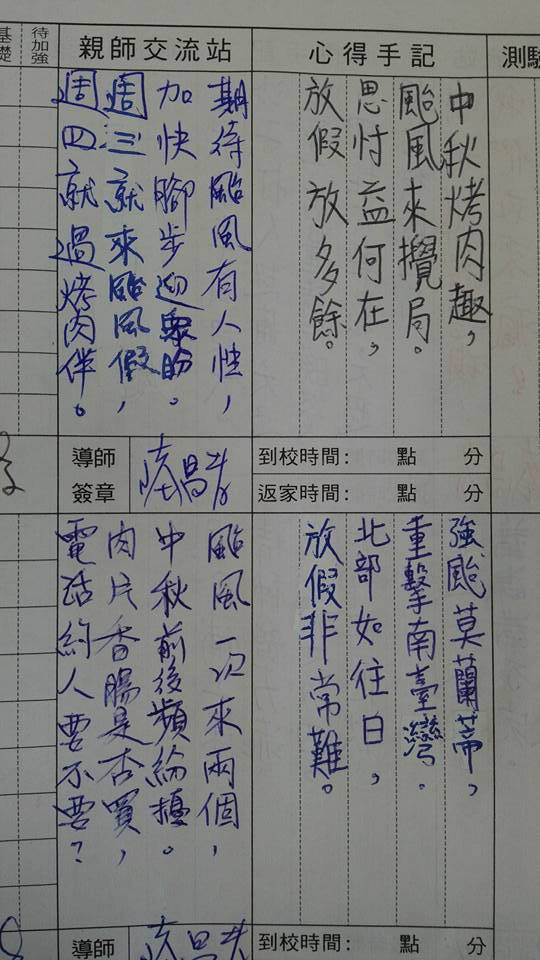 基礎
待加強
親師交流站
心得手記
測驗
中秋烤肉趣，
颱風來攪局。
思忖益何在，
放假放多餘。
期待颱風有人性，
加快腳步迎眾盼。
週三就來颱風假，
週四就過烤肉伴。
導師
簽章
到校時間： 點 分
返家時間： 點 分
強颱莫蘭蒂，
重擊南臺灣。
北部如往日，
放假非常難。
颱風一次來兩個，
中秋前後頻紛擾。
肉片香腸是否買，
電話約人要不要？
導師
到校時間： 點 分